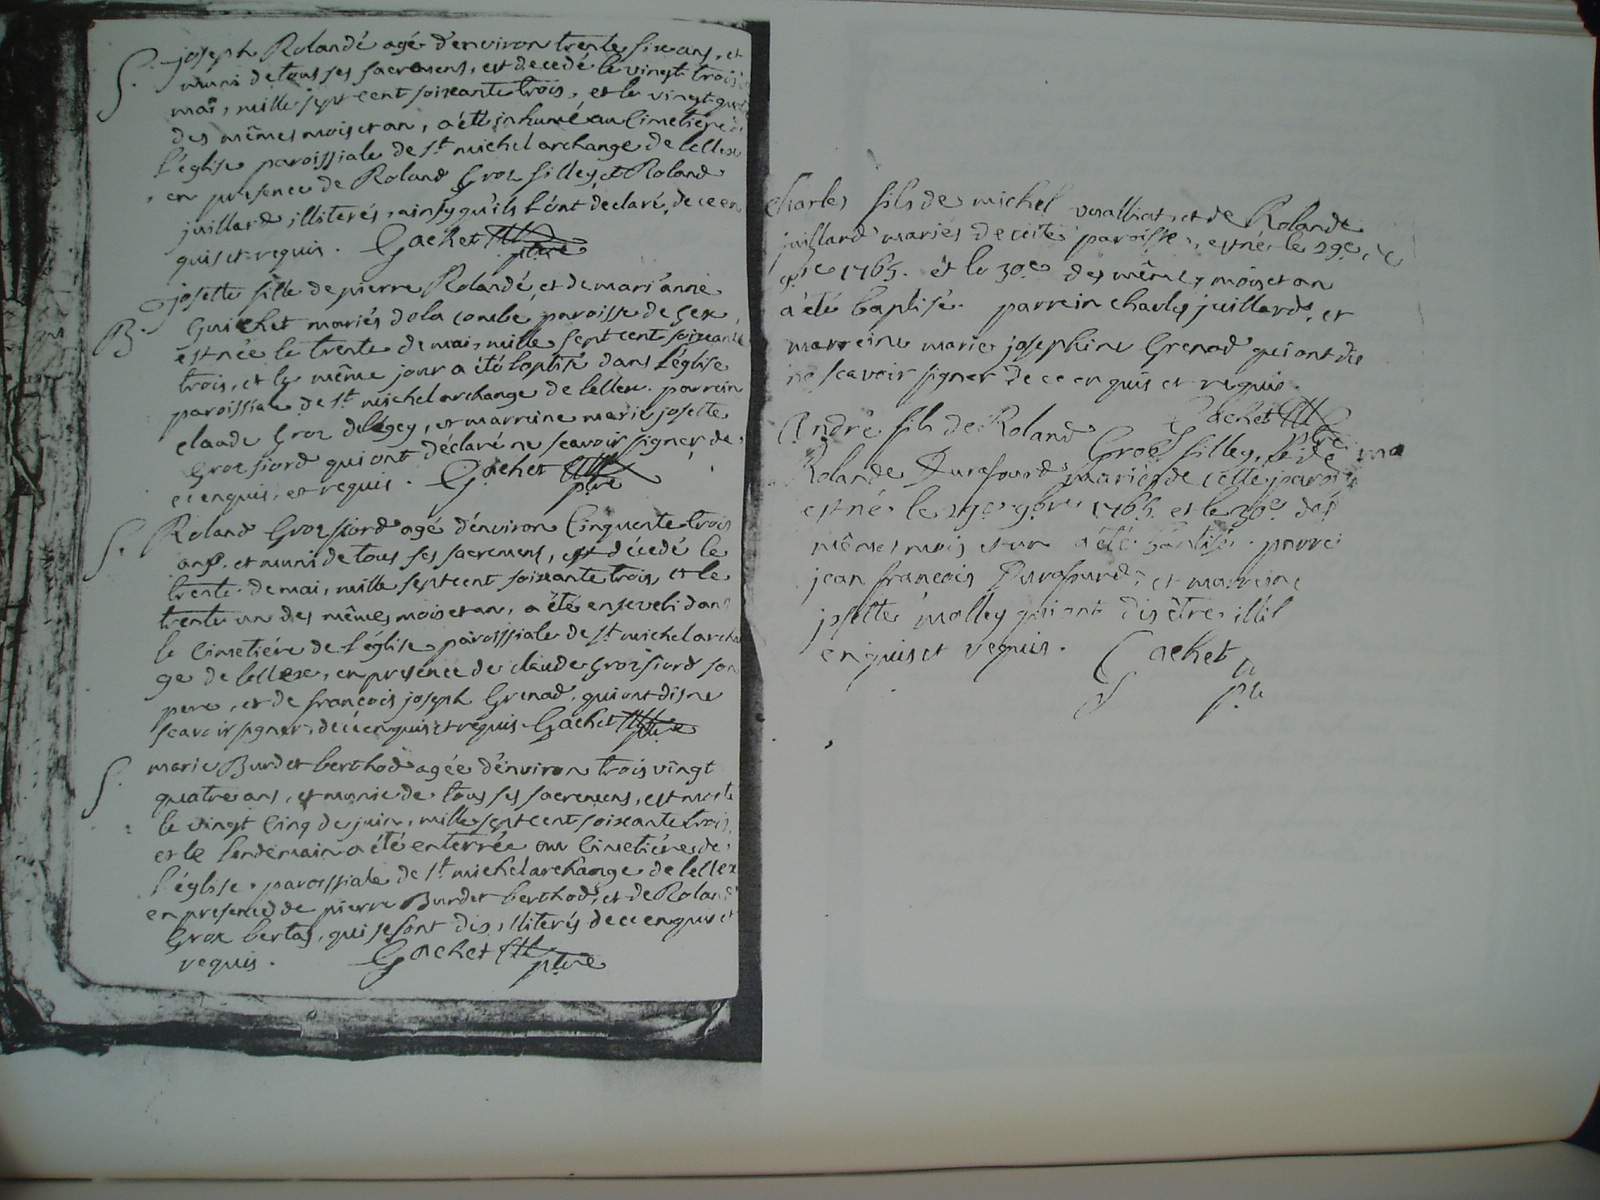 S. joseph Rolandé agé d'environ trente six ans, et
muni de tous ses sacremens, est decedé le vingt trois
mai, mille sept cent soixante trois, et le vingt
des mêmes mois et an, a été inhumé au Cimetiére
l'église paroissiale de st michel archange de lellex
en présence de Roland Groz filley, et Roland
juillard, illiterés, ainsy qu'ils l'ont déclaré, de ce en
quis et requis. Gachet ptre
B. josette fille de pierre Rolandé, et de mari'anne
Guichet mariés de la combe paroisse de Gex,
est née le trente de mai, mille sept cent soixante
trois, et le même jour a été baptisé dans l'église
paroissiale de st michel archange de lellex. parrein
claude Groz, et marreine marie josette
Groz fiord qui ont déclaré ne scavoir signer, de
ce enquis, et requis. Gachet ptre
S. Roland Groz fiord agé d'environ Cinquente trois
ans, et muni de tous ses sacremens, est décédé le
trente de mai, mille sept cent soixante trois, et le
trente un des mêmes mois et an, a été enseveli dans
le Cimetiére de l'église paroissiale de st michel archa
ge de lellex, en presence de claude Groz fiord son
pere, et de francois joseph Grenad, qui ont dis ne
scavoir signer, de ce enquis et requis Gachet ptre
S. marie Burdet berthod agée d'environ trois vingt
quatre ans, et munie de tous ses sacremens, est morte
le vingt Cinq de juin, mille sept cent soixante trois,
et le lendemain a été enterrée au Cimetiére de
l'église paroissiale de st michel archange de lellex
en presence de pierre Burdet berthod, et de Roland
Groz bertas, qui se sont dis illiterés de ce enquis et
requis. Gachet ptre
Charles fils de michel et de Rolande
juillard mariés de cette paroisse, est né le 29e,
9bre 1765. et le 30e des mêmes mois et an
a été baptisé. parrein charles juillard, et
marreine marie josephine Grenad qui ont dis
ne scavoir signer de ce enquis et requis.
Gachet ptre
André fils de Roland Groz filley, et de
Rolande Durafourd mariés de cette paroisse
est né le 29e 9bre 1765. et le 30e des
mêmes mois et an a été baptisé. parrei
jean francois Durafourd, et marreine
josette molley qui ont dis être illit
enquis et requis. Gachet
ptre